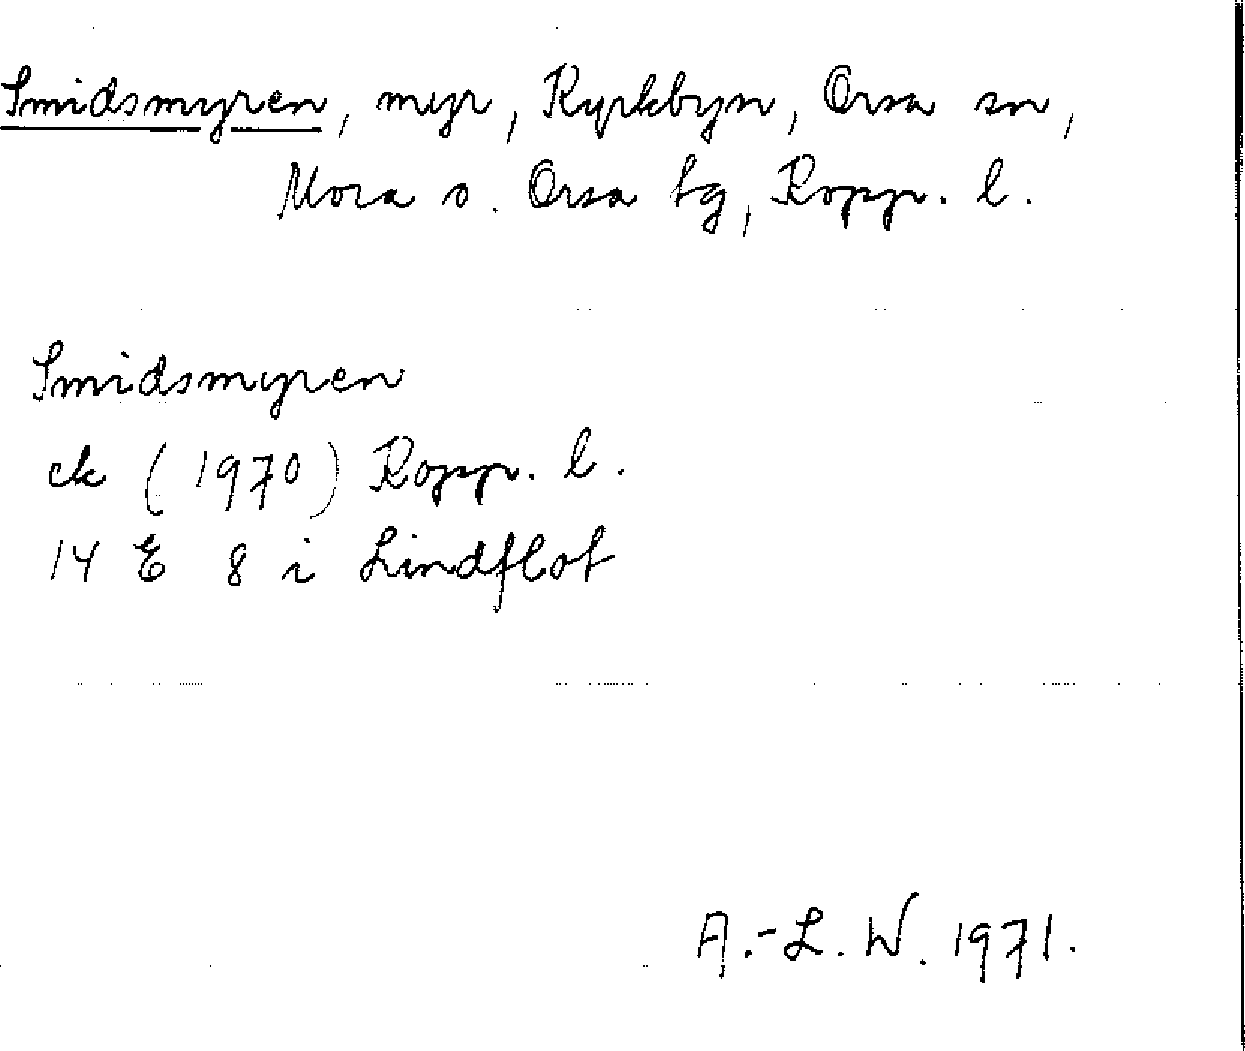 Smidsmyren, myr, Kyrkbyn, Orsa sn,
Mora o. Orsa tg, Kopp. l.
Smidsmyren
ek (1970) Kopp. l.
14 E 8 i Lindflot
A.-L. W. 1971.